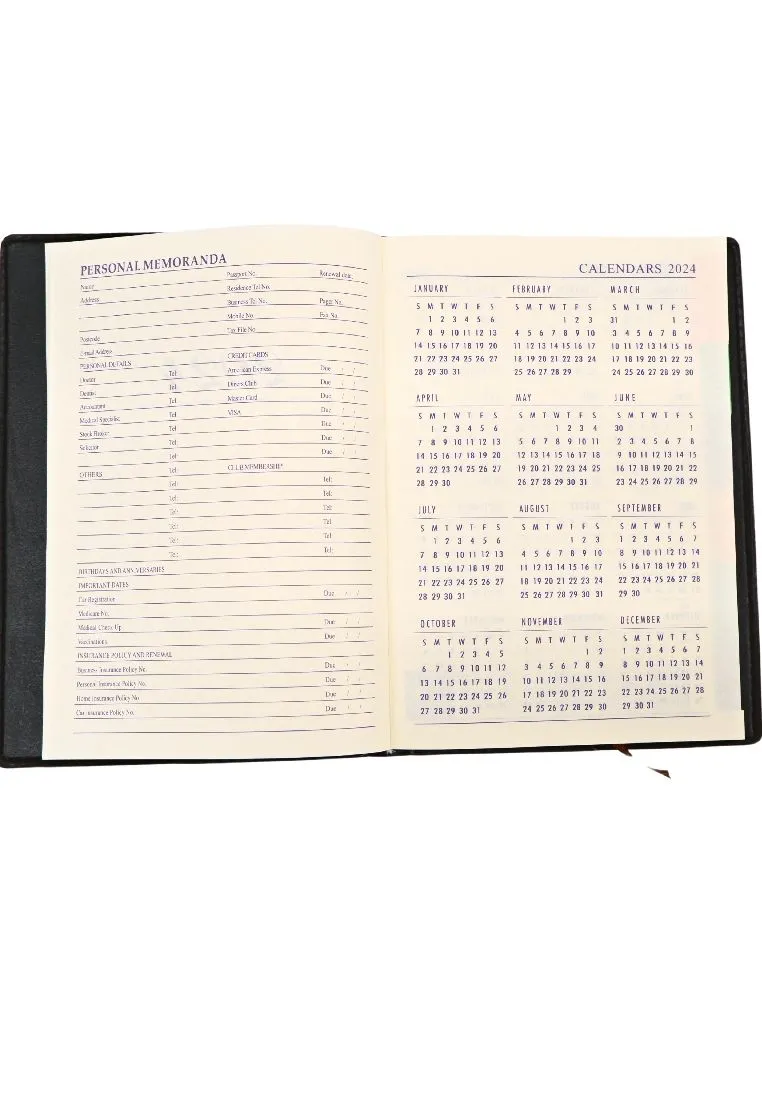 PERSONAL MEMORANDA
Name
Address
Postcode
E-mail Address
PERSONAL DETAILS
Doctor Tel:
Dentist Tel:
Accountant Tel:
Medical Specialist Tel:
Stock Broker Tel:
Solicitor Tel:
Tel:
OTHERS Tel:
Tel:
Tel:
Tel:
Tel:
Tel:
Tel:
Passport No. Renewal date
Residence Tel No.
Business Tel No. Pager No.
Mobile No. Fax No.
Tax File No.
CREDIT CARDS
American Express Due / /
Diners Club Due / /
Master Card Due / /
VISA Due / /
Due / /
Due / /
Due / /
CLUB MEMBERSHIP
Tel:
Tel:
Tel:
Tel:
Tel:
Tel:
BIRTHDAYS AND ANNIVERSARIES
IMPORTANT DATES
Car Registration Due / /
Medicare No.
Medical Check Up Due / /
Vaccinations Due / /
INSURANCE POLICY AND RENEWAL
Business Insurance Policy No. Due / /
Personal Insurance Policy No. Due / /
Home Insurance Policy No. Due / /
Car Insurance Policy No. Due / /
CALENDARS 2024
JANUARY
S M T W T F S
1 2 3 4 5 6
7 8 9 10 11 12 13
14 15 16 17 18 19 20
21 22 23 24 25 26 27
28 29 30 31
FEBRUARY
S M T W T F S
1 2 3
4 5 6 7 8 9 10
11 12 13 14 15 16 17
18 19 20 21 22 23 24
25 26 27 28 29
MARCH
S M T W T F S
31 1 2
3 4 5 6 7 8 9
10 11 12 13 14 15 16
17 18 19 20 21 22 23
24 25 26 27 28 29 30
APRIL
S M T W T F S
1 2 3 4 5 6
7 8 9 10 11 12 13
14 15 16 17 18 19 20
21 22 23 24 25 26 27
28 29 30
MAY
S M T W T F S
1 2 3 4
5 6 7 8 9 10 11
12 13 14 15 16 17 18
19 20 21 22 23 24 25
26 27 28 29 30 31
JUNE
S M T W T F S
30 1
2 3 4 5 6 7 8
9 10 11 12 13 14 15
16 17 18 19 20 21 22
23 24 25 26 27 28 29
JULY
S M T W T F S
1 2 3 4 5 6
7 8 9 10 11 12 13
14 15 16 17 18 19 20
21 22 23 24 25 26 27
28 29 30 31
AUGUST
S M T W T F S
1 2 3
4 5 6 7 8 9 10
11 12 13 14 15 16 17
18 19 20 21 22 23 24
25 26 27 28 29 30 31
SEPTEMBER
S M T W T F S
1 2 3 4 5 6 7
8 9 10 11 12 13 14
15 16 17 18 19 20 21
22 23 24 25 26 27 28
29 30
OCTOBER
S M T W T F S
1 2 3 4 5
6 7 8 9 10 11 12
13 14 15 16 17 18 19
20 21 22 23 24 25 26
27 28 29 30 31
NOVEMBER
S M T W T F S
1 2
3 4 5 6 7 8 9
10 11 12 13 14 15 16
17 18 19 20 21 22 23
24 25 26 27 28 29 30
DECEMBER
S M T W T F S
1 2 3 4 5 6 7
8 9 10 11 12 13 14
15 16 17 18 19 20 21
22 23 24 25 26 27 28
29 30 31